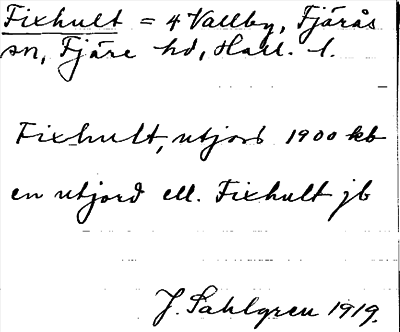 Fixhult = 4 Vallby, Fjärås
sn, Fjäre hd, Hall. l.
Fixhult, utjord 1900 kb
en utjord ell. Fixhult jb
J. Sahlgren 1919.